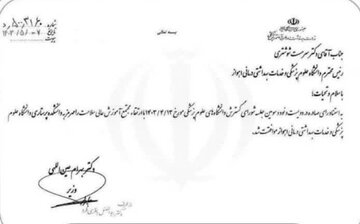 بسمه تعالی
جناب آقای دکتر سرمست شوشتری
رئیس محترم دانشگاه علوم پزشکی و خدمات بهداشتی درمانی اهواز
با سلام و تحیات؛
به استناد رای صادره از دویست و نود و سومین جلسه شورای گسترش دانشگاه‌های علوم پزشکی مورخ ۱۴۰۳/۴/۱۳ با ارتقاء مجتمع آموزش عالی سلامت رامهرمز به دانشکده پرستاری دانشگاه علوم
پزشکی و خدمات بهداشتی درمانی اهواز موافقت شد.
دکتر بهرام عین اللهی
وزیر